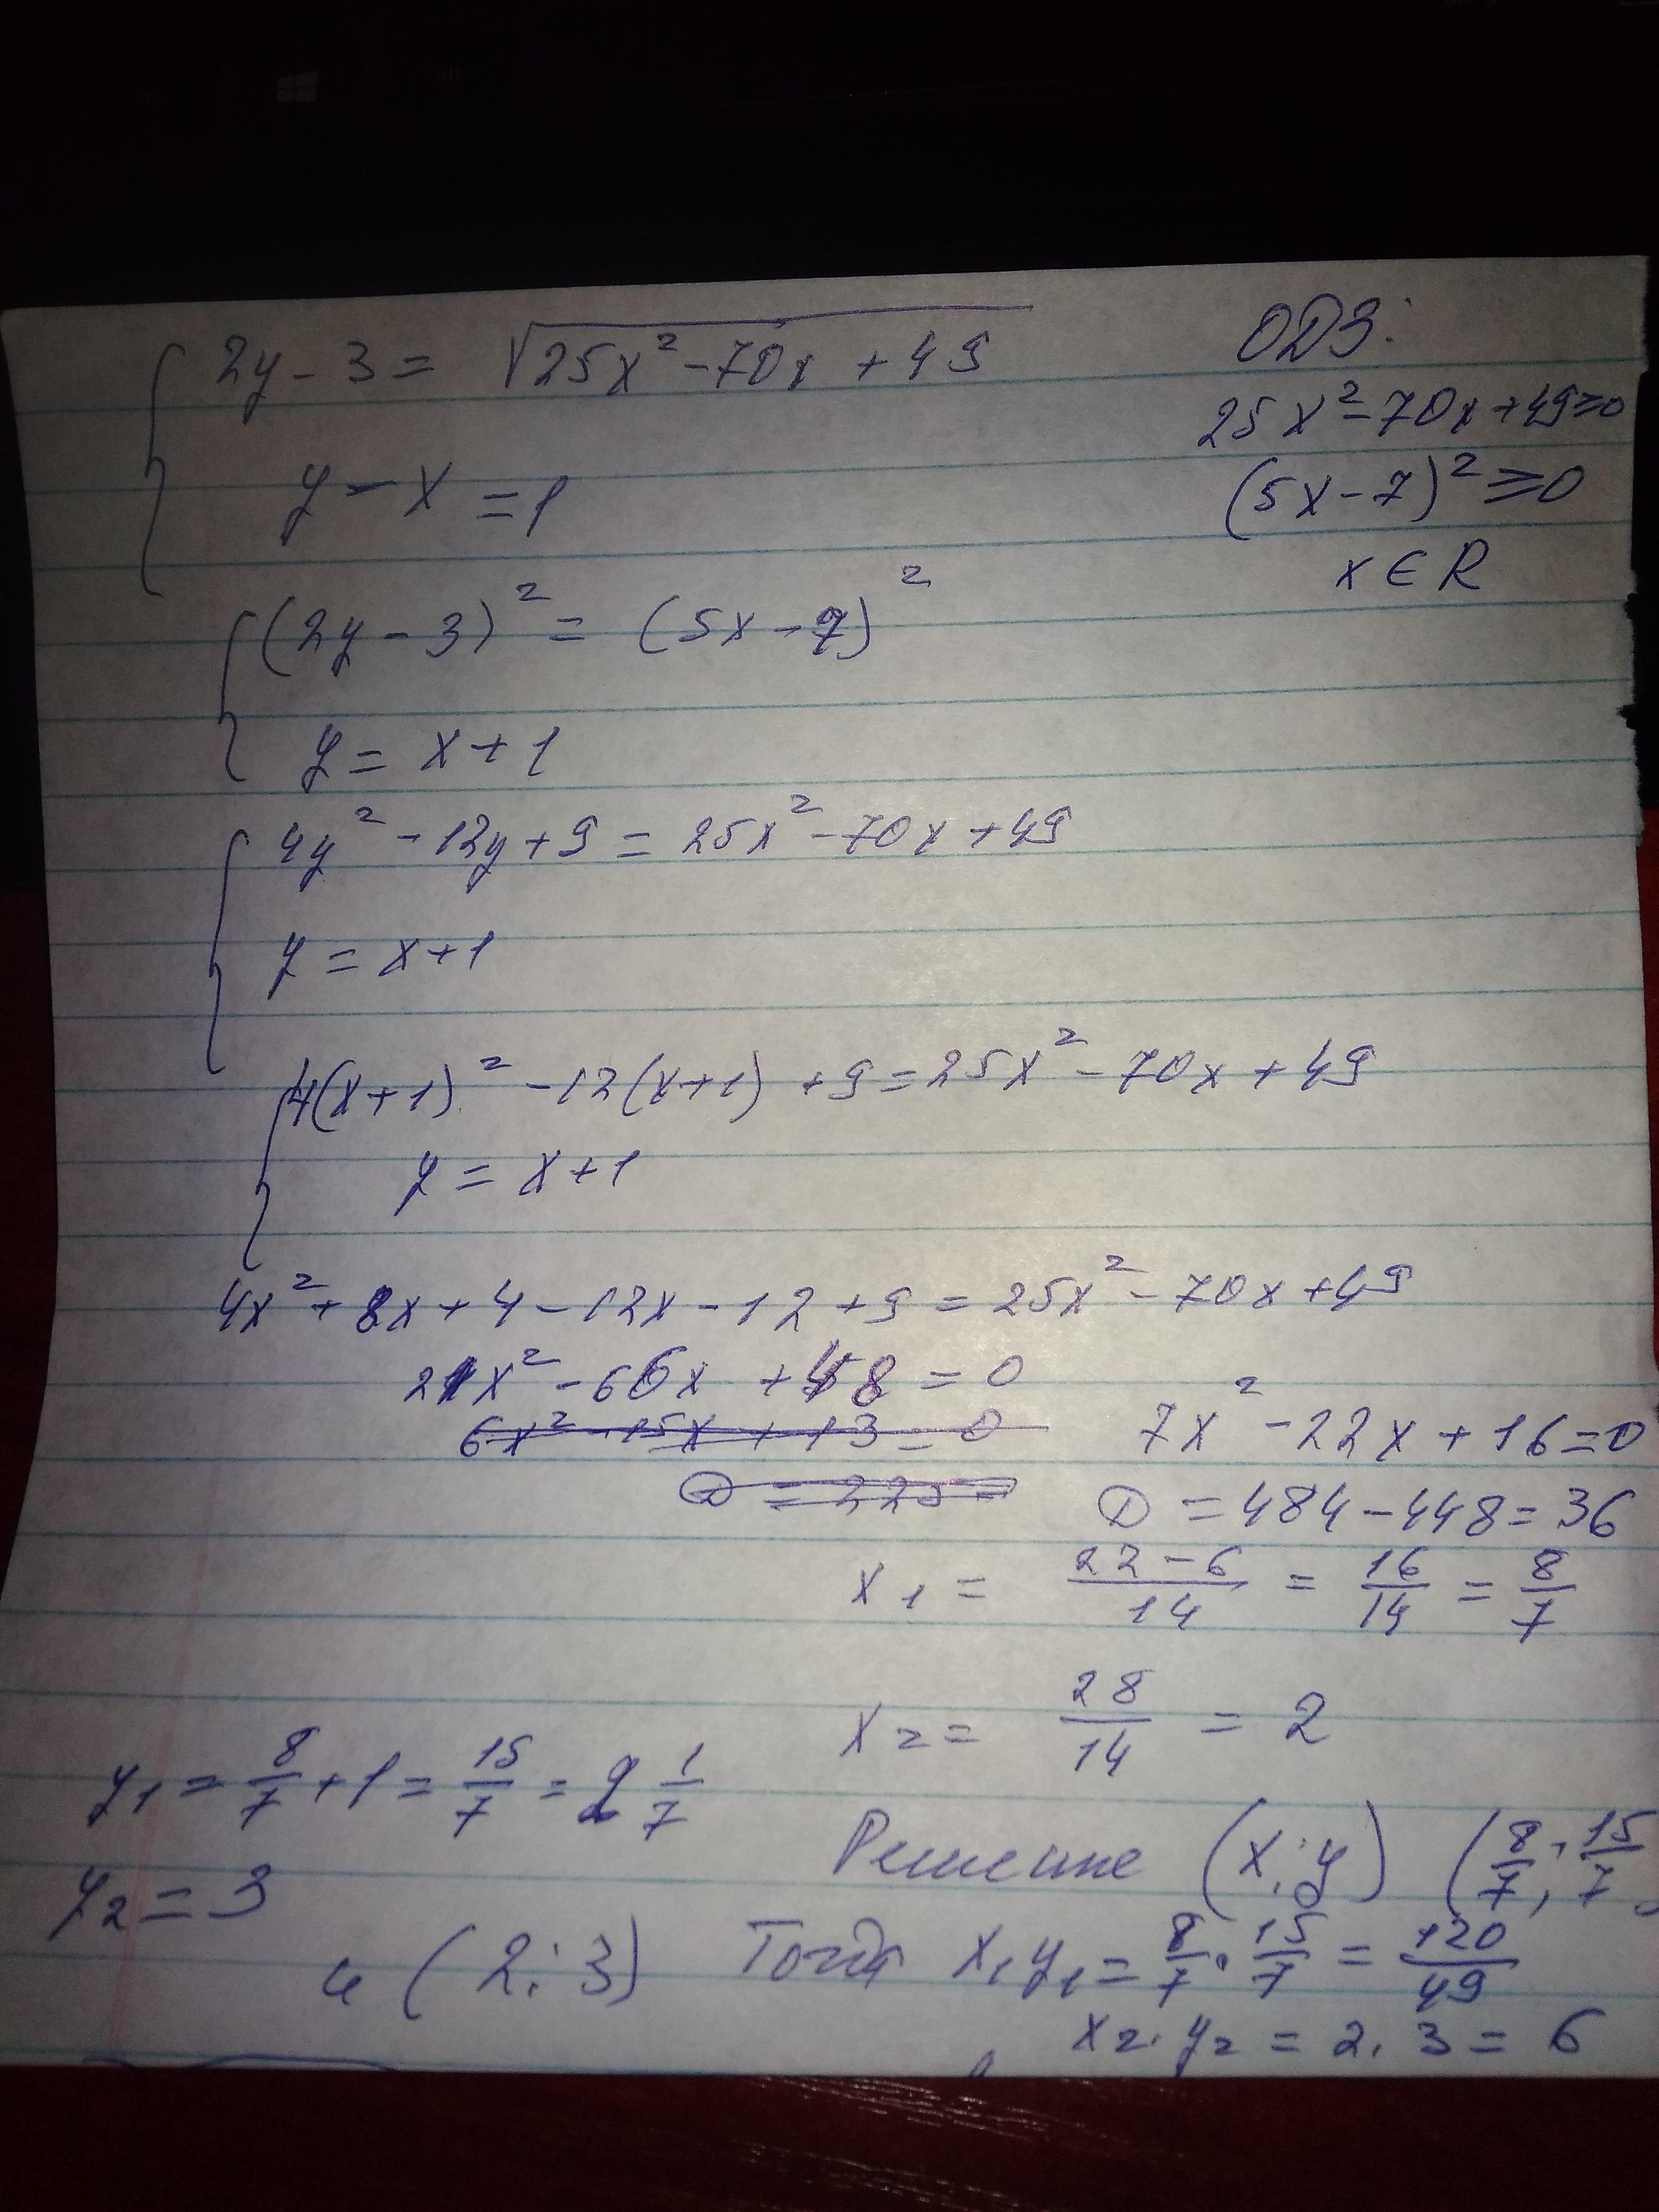 2y - 3 = √25x² - 70x + 49
ОДЗ:
25x² - 70x + 49 ≥ 0
y - x = 1
(5x - 7)² ≥ 0
x ∈ R
(2y - 3)² = (5x - 7)²
y = x + 1
4y² - 12y + 9 = 25x² - 70x + 49
y = x + 1
4(x + 1)² - 12(x + 1) + 9 = 25x² - 70x + 49
y = x + 1
4x² + 8x + 4 - 12x - 12 + 9 = 25x² - 70x + 49
21x² - 66x + 48 = 0
6x² - 15x + 13 = 0
7x² - 22x + 16 = 0
D = 225 =
D = 484 - 448 = 36
x₁ = 22 - 6 / 14 = 16/14 = 8/7
x₂ = 28/14 = 2
y₁ = 8/7 + 1 = 15/7 = 2 1/7
y₂ = 3
Решение (x; y) (8/7; 15/7
и (2; 3)
Тогда x₁y₁ = 8/7 · 15/7 = 120/49
x₂ · y₂ = 2 · 3 = 6